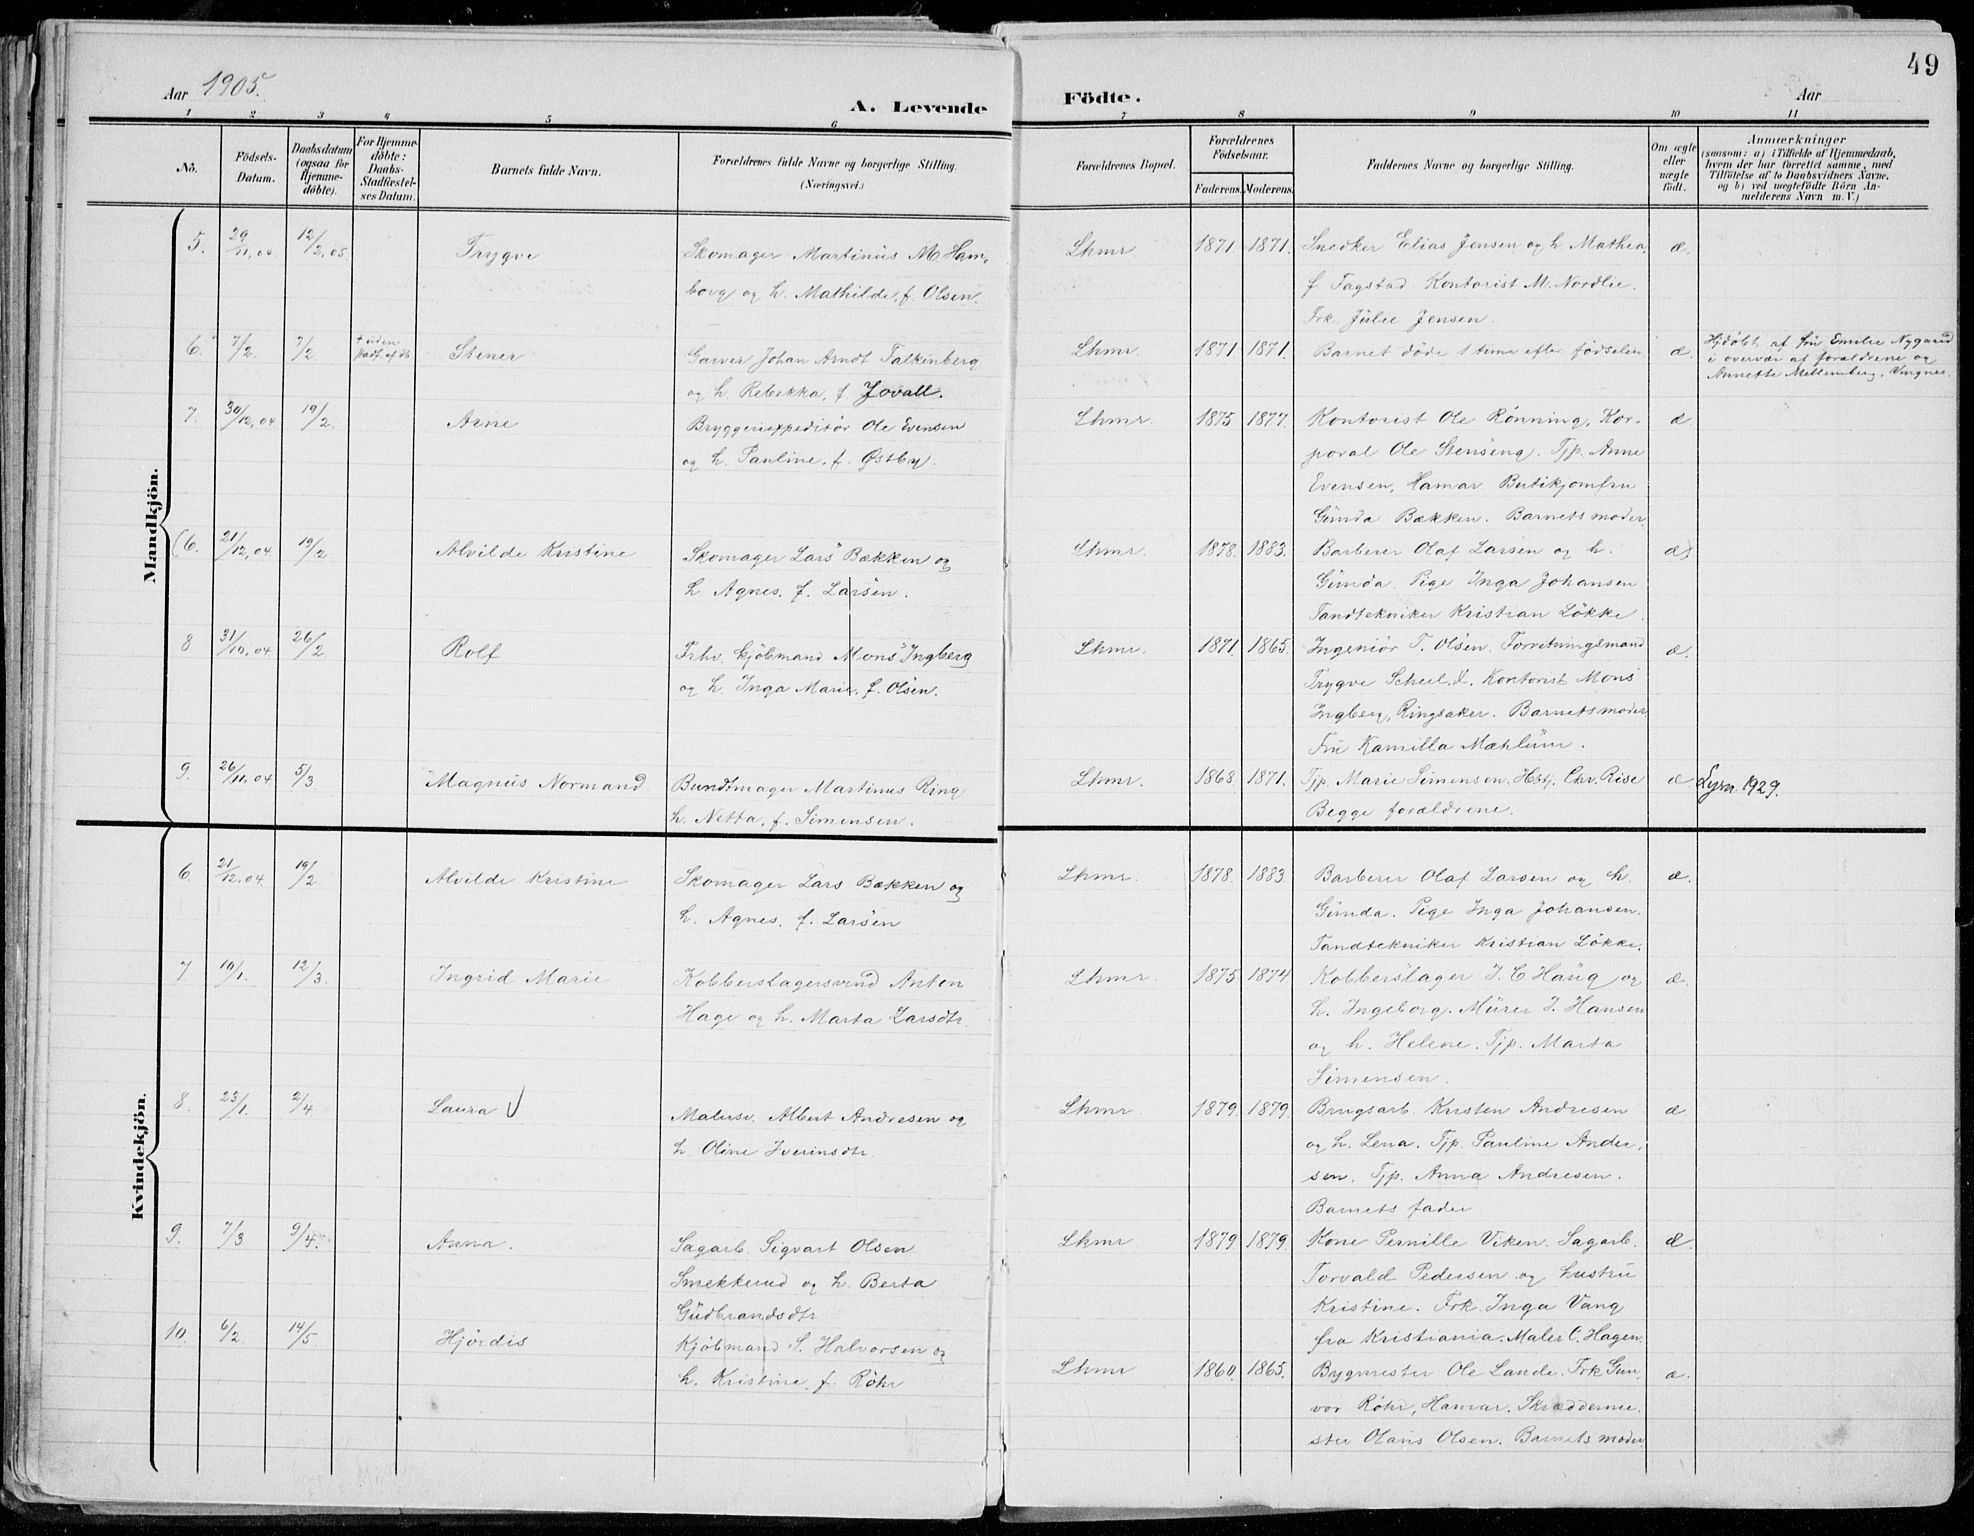 49
Aar 1905.
A. Levende Födte.
Aar
1 2 3 4 5 6 7 8 9 10 11
No.
Födsels-Datum.
Daabsdatum (ogsaa for Hjemme-döbte).
For Hjemme-døbte: Daabs-Stadfæstel-ses Datum.
Barnets fulde Navn.
Forældrenes fulde Navne og borgerlige Stilling.
(Næringsvei.)
Forældrenes Bopæl.
Forældrenes Födselsaar.
Faderens. Moderens.
Faddernes Navne og borgerlige Stilling.
Om ægte eller uægte födt.
Anmærkninger
(saasom: a) i Tilfælde af Hjemmedaab,
hvem der har forrettet samme, med
Tilföielse af to Daabsvidners Navne,
og b) ved uægtefödte Börn An-
melderens Navn m. V.)
Mandkjön.
5. 29/11,04 12/2,05 Trygve Skomager Martinus M Ham- Lhmr 1871. 1871. Snedker Elias Jensen og h. Mathea æ.
borg og h. Mathilde, f. Olsen. f. Fagstad. Kontorist M. Nordlie.
Frk Julie Jensen.
6. 7/2. 7/2 + uden Stener Garver Johan Arndt Falkenberg Lhmr 1871. 1871. Barnet döde 1 time efter födselen æ. Hjdöbt af fru Emilie Nygaard
og h. Rebekka, f. Jovall. i overvær af forældrene og
Annette Mellemberg, Vingnes.
7. 30/12,04 19/2. Arne Bryggeriexpeditör Ole Evensen Lhmr. 1875 1877. Kontorist Ole Rönning, Kor- æ
og h. Pauline, f. Østby. poral Ole Stenseng. Tjp. Anne
Evensen, Hamar. Butikjomfru
Gunda Bækken. Barnets moder
(6. 21/12,04. 19/2 Alvilde Kristine Skomager Lars Bækken og Lhmr. 1878. 1883. Barberer Olaf Larsen og h. æ)
h. Agnes, f. Larsen. Gunda. Pige Inga Johansen
Tandtekniker Kristian Lökke.
8 31/10,04 26/2 Rolf Frhv. kjöbmand Mons Ingberg Lhmr. 1871. 1865. Ingeniör T. Olsen. Forretningsmand æ.
og h. Inga Marie, f. Olsen. Trygve Scheel. Kontorist Mons
Ingberg, Ringsaker. Barnets moder
Fru Kamilla Mæhlum.
9. 26/11,04 5/3 Magnus Normand Bundtmager Martinus Ring Lhmr. 1868. 1871. Tjp. Marie Simensen. Chr. Rise æ Lysn. 1929.
h. Netta, f. Simensen. Begge forældrene.
Kvindekjön.
6. 21/12,04. 19/2. Alvilde Kristine Skomager Lars Bækken og Lhmr. 1878. 1883 Barberer Olaf Larsen og h. æ.
h. Agnes, f. Larsen Gunda. Pige Inga Johansen.
Tandtekniker Kristian Lökke.
7 10/1. 12/3. Ingrid Marie Kobberslagersvend Anton Lhmr. 1875 1874. Kobberslager J. C Haug og æ.
Hage og h. Marta Larsdtr. h. Ingeborg. Murer J. Hansen
og h. Helene. Tjp. Marta
Simensen.
8. 23/1. 2/4 Laura Malersv. Albert Andresen og Lhmr 1879. 1879. Brugsarb. Kristen Andresen æ
h. Oline Iverinsdtr. og h. Lena. Tjp Pauline Ander-
sen. Tjp. Anna Andresen.
Barnets fader
9. 7/3 9/4. Anna. Sagarb. Sigvart Olsen Lhmr 1879 1879. Kone Pernille Viken. Sagarb. æ.
Smekkerud og h. Berta Torvald Pedersen og hustru
Gudbrandsdtr Kristine. Frk. Inga Vang
fra Kristiania. Maler C. Hagen.
10. 6/2 14/5 Hjördis Kjöbmand S. Halvorsen og Lhmr 1860. 1865. Bygmester Ole Lande. Frk Gun- æ.
h. Kristine, f. Röhr vor Röhr, Hamar. Skrædderme-
ster Olaus Olsen. Barnets moder